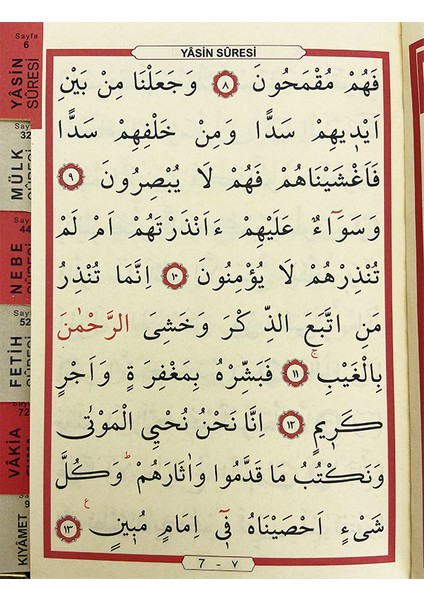 YÂSİN SÛRESİ
فَهُمْ مُقْمَحُونَ ٨ وَجَعَلْنَا مِنْ بَيْنِ
اَيْدٖيهِمْ سَدًّا وَمِنْ خَلْفِهِمْ سَدًّا
فَاَغْشَيْنَاهُمْ فَهُمْ لَا يُبْصِرُونَ ٩
وَسَوَٓاءٌ عَلَيْهِمْ ءَاَنْذَرْتَهُمْ اَمْ لَمْ
تُنْذِرْهُمْ لَا يُؤْمِنُونَ ١٠ اِنَّمَا تُنْذِرُ
مَنِ اتَّبَعَ الذِّكْرَ وَخَشِىَ الرَّحْمٰنَ
بِالْغَيْبِۚ ١١ فَبَشِّرْهُ بِمَغْفِرَةٍ وَاَجْرٍ
كَرٖيمٍ ١٢ اِنَّا نَحْنُ نُحْيِ الْمَوْتٰى
وَنَكْتُبُ مَا قَدَّمُوا وَاٰثَارَهُمْؕ وَكُلَّ
شَىْءٍ اَحْصَيْنَاهُ فٖٓى اِمَامٍ مُبٖينٍ ١٣
ع
7 - ٧
Sayfa
6
YÂSİN
SÛRESİ
32
MÜLK
44
NEBE
52
FETİH
72
VÂKIA
9
KIYÂMET